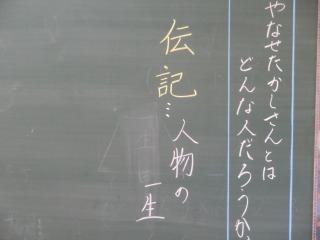 やなせたかしさんとは
どんな人だろうか。
伝記…人物の
一生